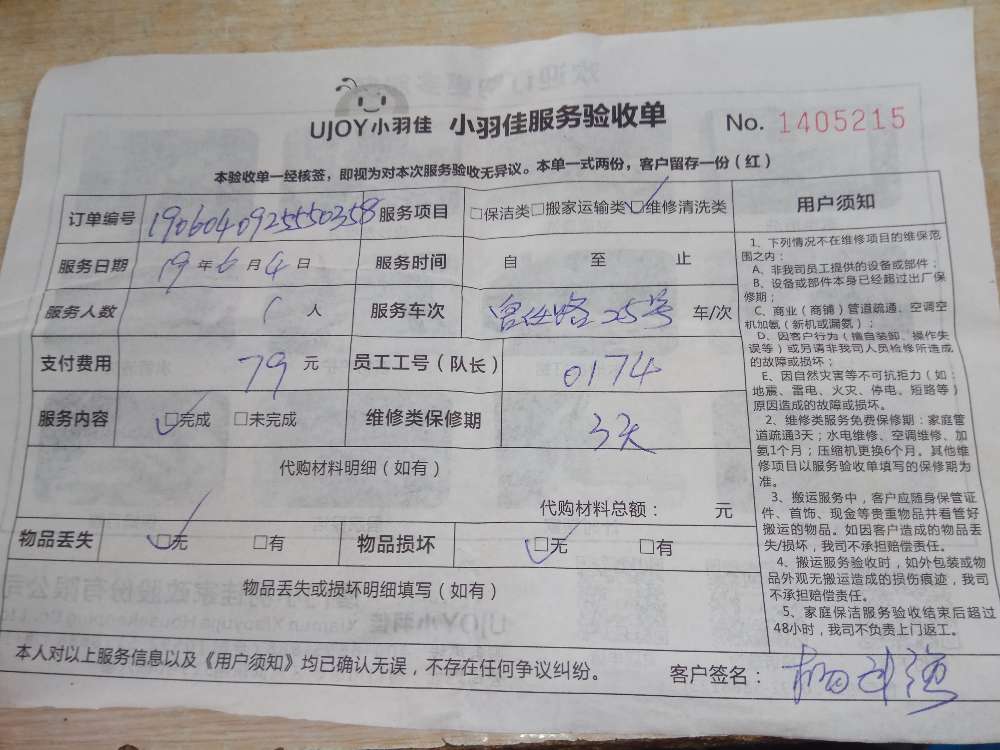 UJOY小羽佳 小羽佳服务验收单 No. 1405215
本验收单一经核签，即视为对本次服务验收无异议。本单一式两份，客户留存一份（红）
订单编号 1906040925550358 服务项目 □保洁类□搬家运输类□维修清洗类
服务日期 19年6月4日 服务时间 自 至 止
服务人数 1人 服务车次 25号 车/次
支付费用 79元 员工工号（队长） 0174
服务内容 □完成 □未完成 维修类保修期 3天
代购材料明细（如有）
代购材料总额： 元
物品丢失 □无 □有 物品损坏 □无 □有
物品丢失或损坏明细填写（如有）
用户须知
1、下列情况不在维修项目的维保范
围之内：
A、非我司员工提供的设备或部件；
B、设备或部件本身已经超过出厂保
修期；
C、商业（商铺）管道疏通、空调空
机加氨（新机或漏氨）；
D、因客户行为（擅自装卸、操作失
误等）或另请非我司人员检修所造成
的故障或损坏；
E、因自然灾害等不可抗拒力（如：
地震、雷电、火灾、停电、短路等）
原因造成的故障或损坏。
2、维修类服务免费保修期：家庭管
道疏通3天；水电维修、空调维修、加
氨1个月；压缩机更换6个月。其他维
修项目以服务验收单填写的保修期为
准。
3、搬运服务中，客户应随身保管证
件、首饰、现金等贵重物品并看管好
搬运的物品。如因客户造成的物品丢
失/损坏，我司不承担赔偿责任。
4、搬运服务验收时，如外包装或物
品外观无搬运造成的损伤痕迹，我司
不承担赔偿责任。
5、家庭保洁服务验收结束后超过
48小时，我司不负责上门返工。
本人对以上服务信息以及《用户须知》均已确认无误，不存在任何争议纠纷。 客户签名：